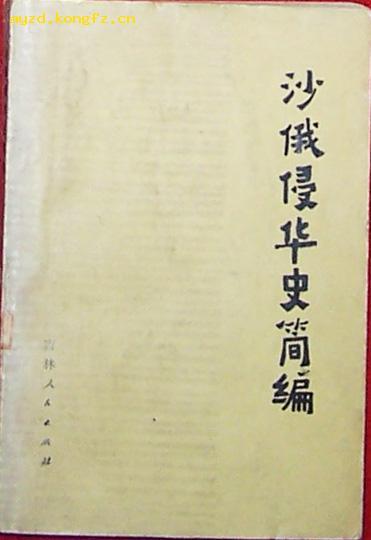 myzd.kongfz.cn
沙俄侵华史简编
吉林人民出版社